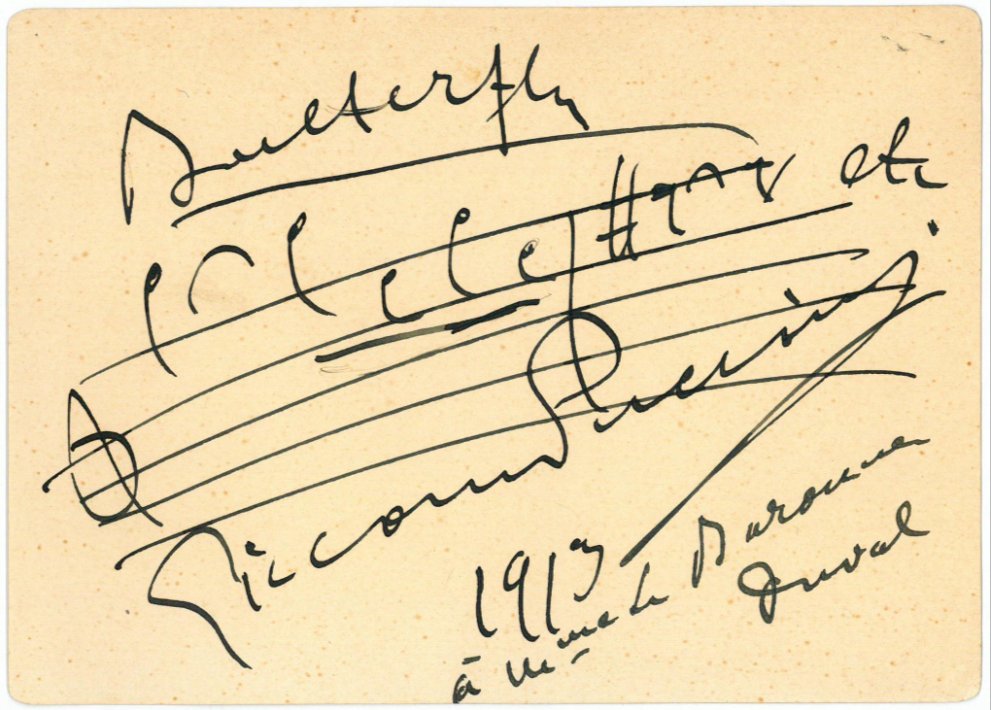 Butterfly
etc
Giacomo Puccini
1913
à Mme la Baronne
Duval